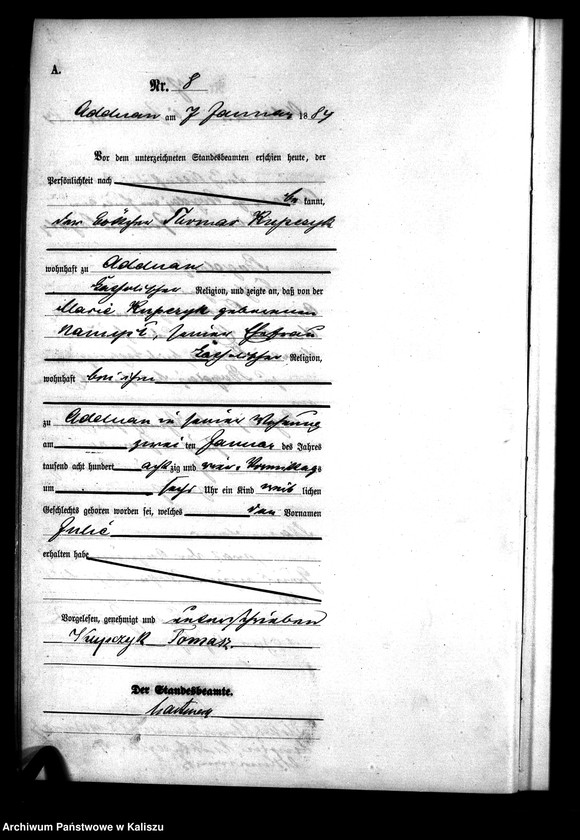 A.
Nr. 8
Adelnau am 7 Januar 1884
Vor dem unterzeichneten Standesbeamten erschien heute, der
Persönlichkeit nach
be kannt,
der Thomas Kupczyk
wohnhaft zu Adelnau
katholischer Religion, und zeigte an, daß von der
Marie Kupczyk geborenen
seiner Ehefrau
katholischer Religion,
wohnhaft bei ihm
zu Adelnau in seiner Wohnung
am zwei ten Januar des Jahres
tausend acht hundert acht zig und vier Vormittags
um sechs Uhr ein Kind weib lichen
Geschlechts geboren worden sei, welches den Vornamen
Julie
erhalten habe
Vorgelesen, genehmigt und unterschrieben
Kupczyk Tomasz.
Der Standesbeamte.
Archiwum Państwowe w Kaliszu